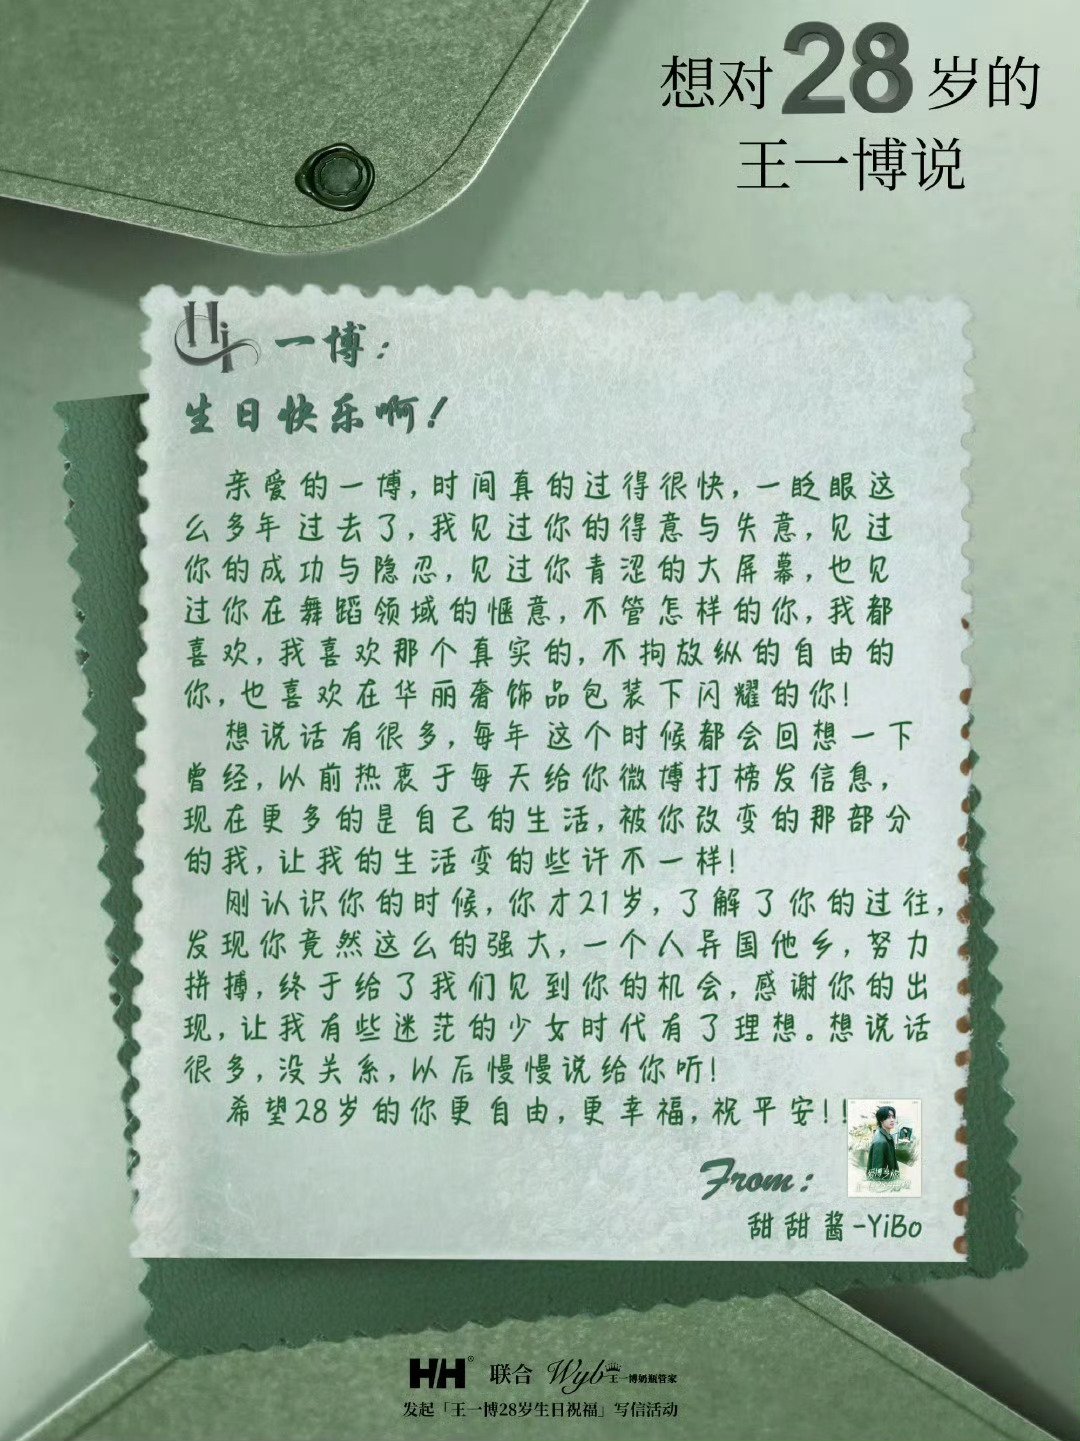 想对28岁的
王一博说
Hi 一博：
生日快乐啊！
亲爱的一博，时间真的过得很快，一眨眼这
么多年过去了，我见过你的得意与失意，见过
你的成功与隐忍，见过你青涩的大屏幕，也见
过你在舞蹈领域的惬意，不管怎样的你，我都
喜欢，我喜欢那个真实的，不拘放纵的自由的
你，也喜欢在华丽奢饰品包装下闪耀的你！
想说话有很多，每年这个时候都会回想一下
曾经，以前热衷于每天给你微博打榜发信息，
现在更多的是自己的生活，被你改变的那部分
的我，让我的生活变的些许不一样！
刚认识你的时候，你才21岁，了解了你的过往，
发现你竟然这么的强大，一个人异国他乡，努力
拼搏，终于给了我们见到你的机会，感谢你的出
现，让我有些迷茫的少女时代有了理想。想说话
很多，没关系，以后慢慢说给你听！
希望28岁的你更自由，更幸福，祝平安！！
From：
甜甜酱-YiBo
HH® 联合 Wyb王一博奶瓶管家
发起「王一博28岁生日祝福」写信活动